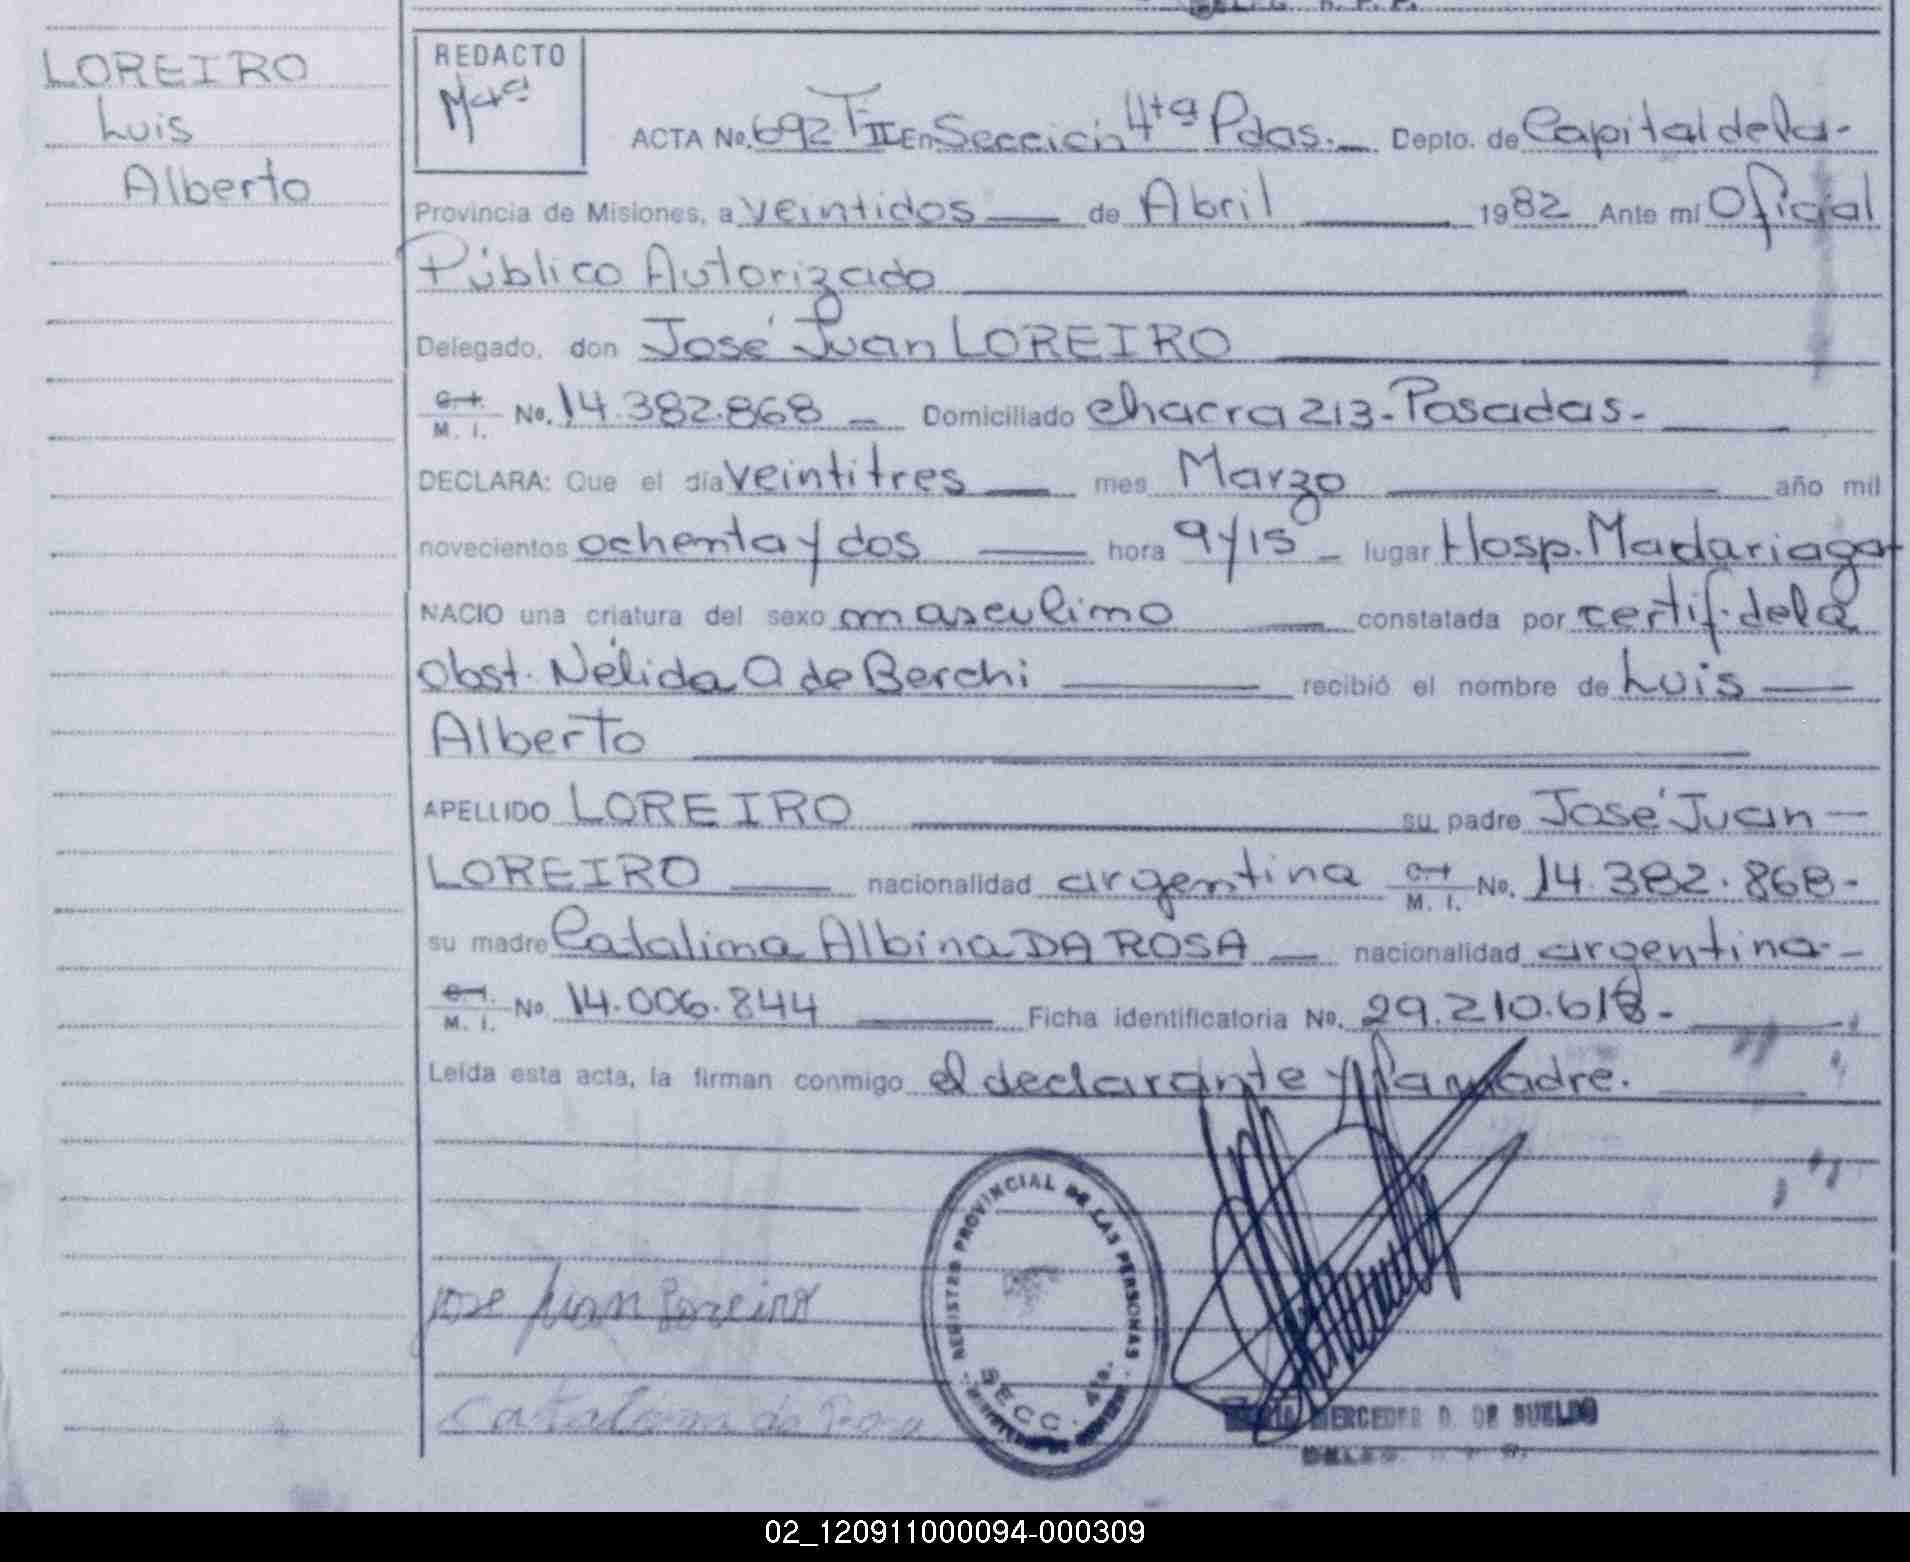 LOREIRO
Luis
Alberto
REDACTO
Mª
ACTA No. 692 T II En Sección 4ta Pdas. Depto. de Capital de la-
Provincia de Misiones, a veintidos de Abril 1982 Ante mi Oficial
Público Autorizado
Delegado, don José Juan LOREIRO
C. I.
M. I. No. 14.382.868 - Domiciliado chacra 213 - Posadas-
DECLARA: Que el día veintitres mes Marzo año mil
novecientos ochenta y dos hora 9 y 15 - lugar Hosp. Madariaga
NACIO una criatura del sexo masculino constatada por certif. de la
Obst. Nélida O de Berchi recibió el nombre de Luis
Alberto
APELLIDO LOREIRO su padre José Juan
LOREIRO nacionalidad argentina C. I.
M. I. No. 14.382.868-
su madre Catalina Albina DA ROSA nacionalidad argentina-
C. I.
M. I. No. 14.006.844 Ficha identificatoria No. 29.210.618-
Leída esta acta, la firman conmigo el declarante y la madre.
REGISTRO PROVINCIAL DE LAS PERSONAS
SECC. 4ta.
Jose Juan Loreiro
Catalina da Rosa
MERCEDES D. DE SUELDO
02_120911000094-000309